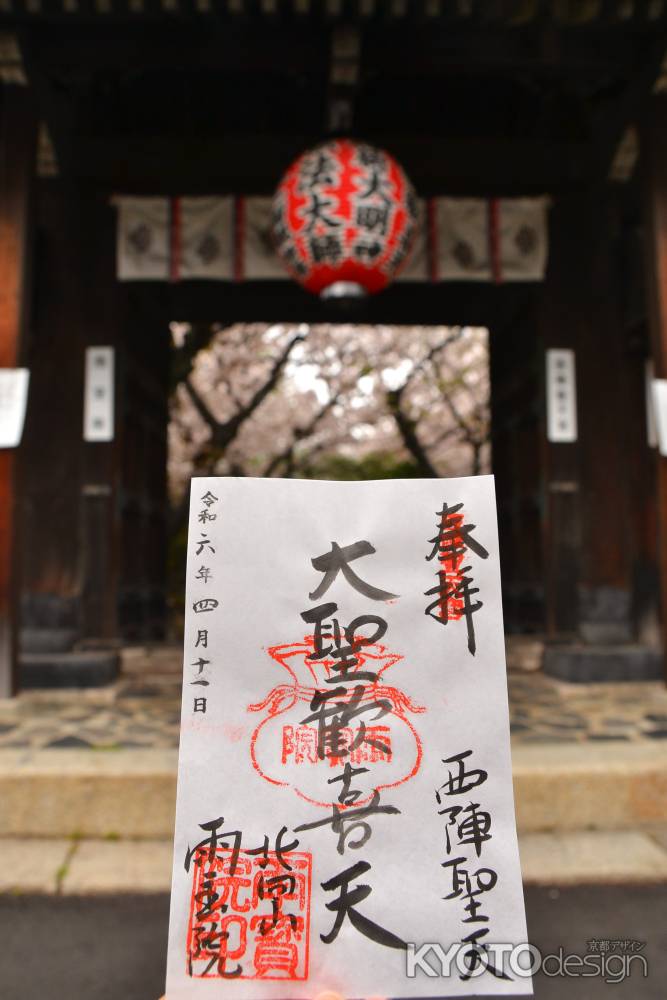 大明神
法大師
奉拝
西陣聖天
大聖歓喜天
北向山
雨宝院
令和六年四月十一日
雨寳院印
KYOTOdesign
京都デザイン